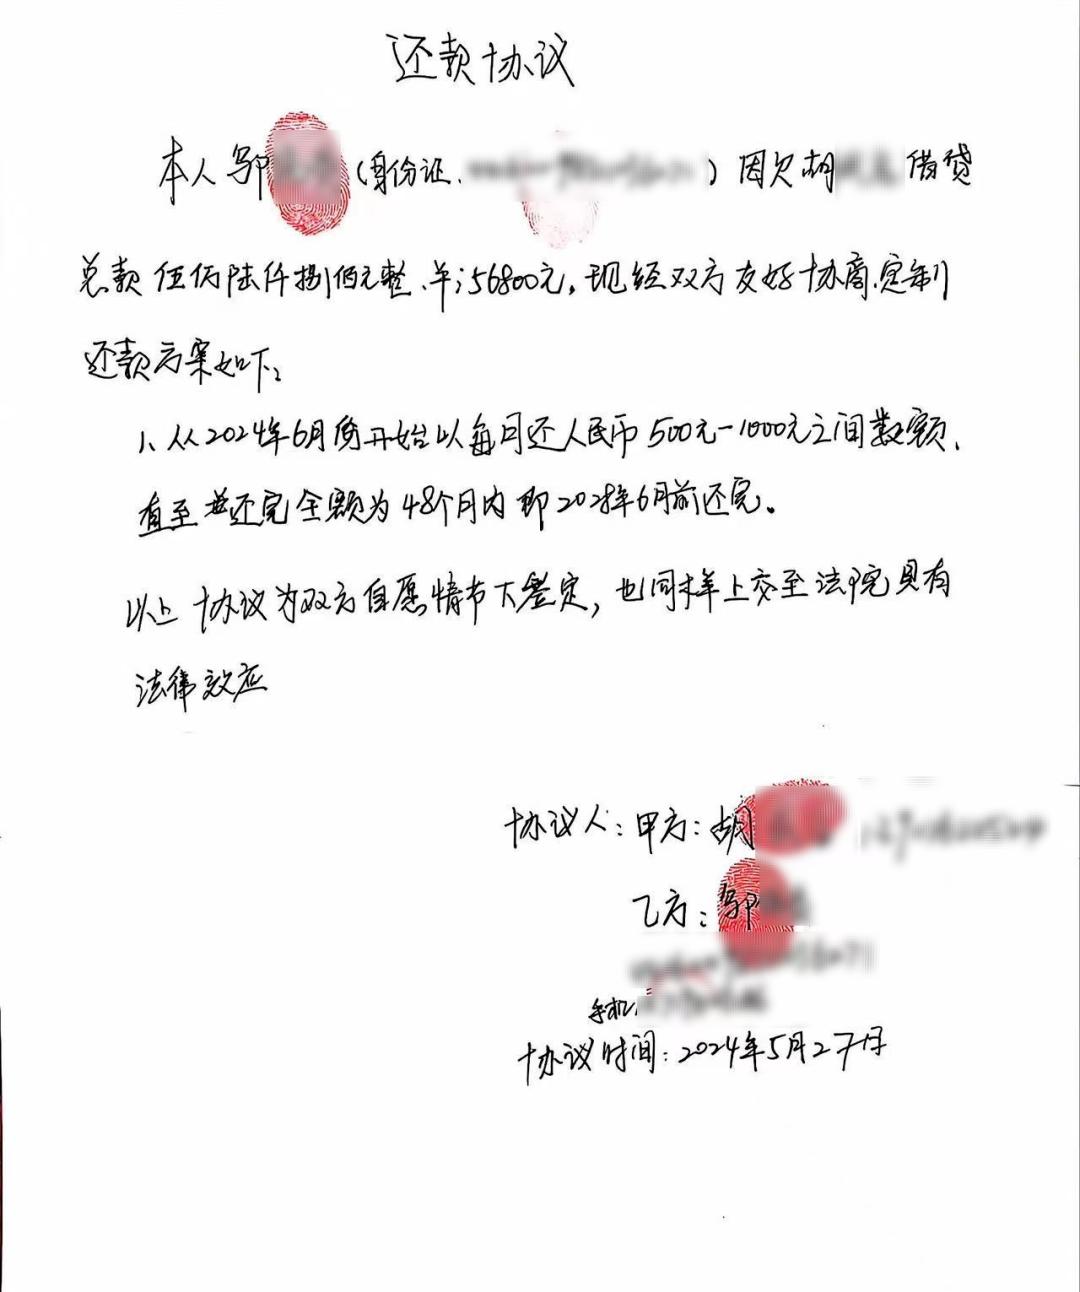 还款协议
本人邬（身份证、）因欠胡借贷
总款伍仟陆仟捌佰元整、¥:56800元，现经双方友好协商，定制
还款方案如下：
1、从2024年6月份开始以每月还人民币500元-1000元之间数额、
直至还完全额为48个月内即2028年6月前还完。
以上协议为双方自愿情节下签定，也同样上交至法院具有
法律效应
协议人：甲方：胡
乙方：邬
手机:
协议时间：2024年5月27日